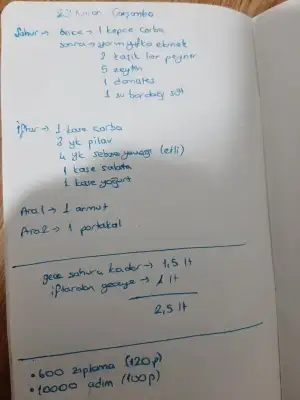 23 Nisan Çarşamba
Sahur → önce → 1 kepçe çorba
sonra → yarım yufka ekmek
2 kaşık lor peynir
5 zeytin
1 domates
1 su bardağı süt
iftar → 1 kase çorba
3 yk pilav
4 yk sebze yemeği (etli)
1 kase salata
1 kase yoğurt
Ara1 → 1 armut
Ara2 → 1 portakal
gece sahura kadar → 1,5 lt
iftardan geceye → 1 lt
2,5 lt
• 600 zıplama (120p)
• 10000 adım (100p)